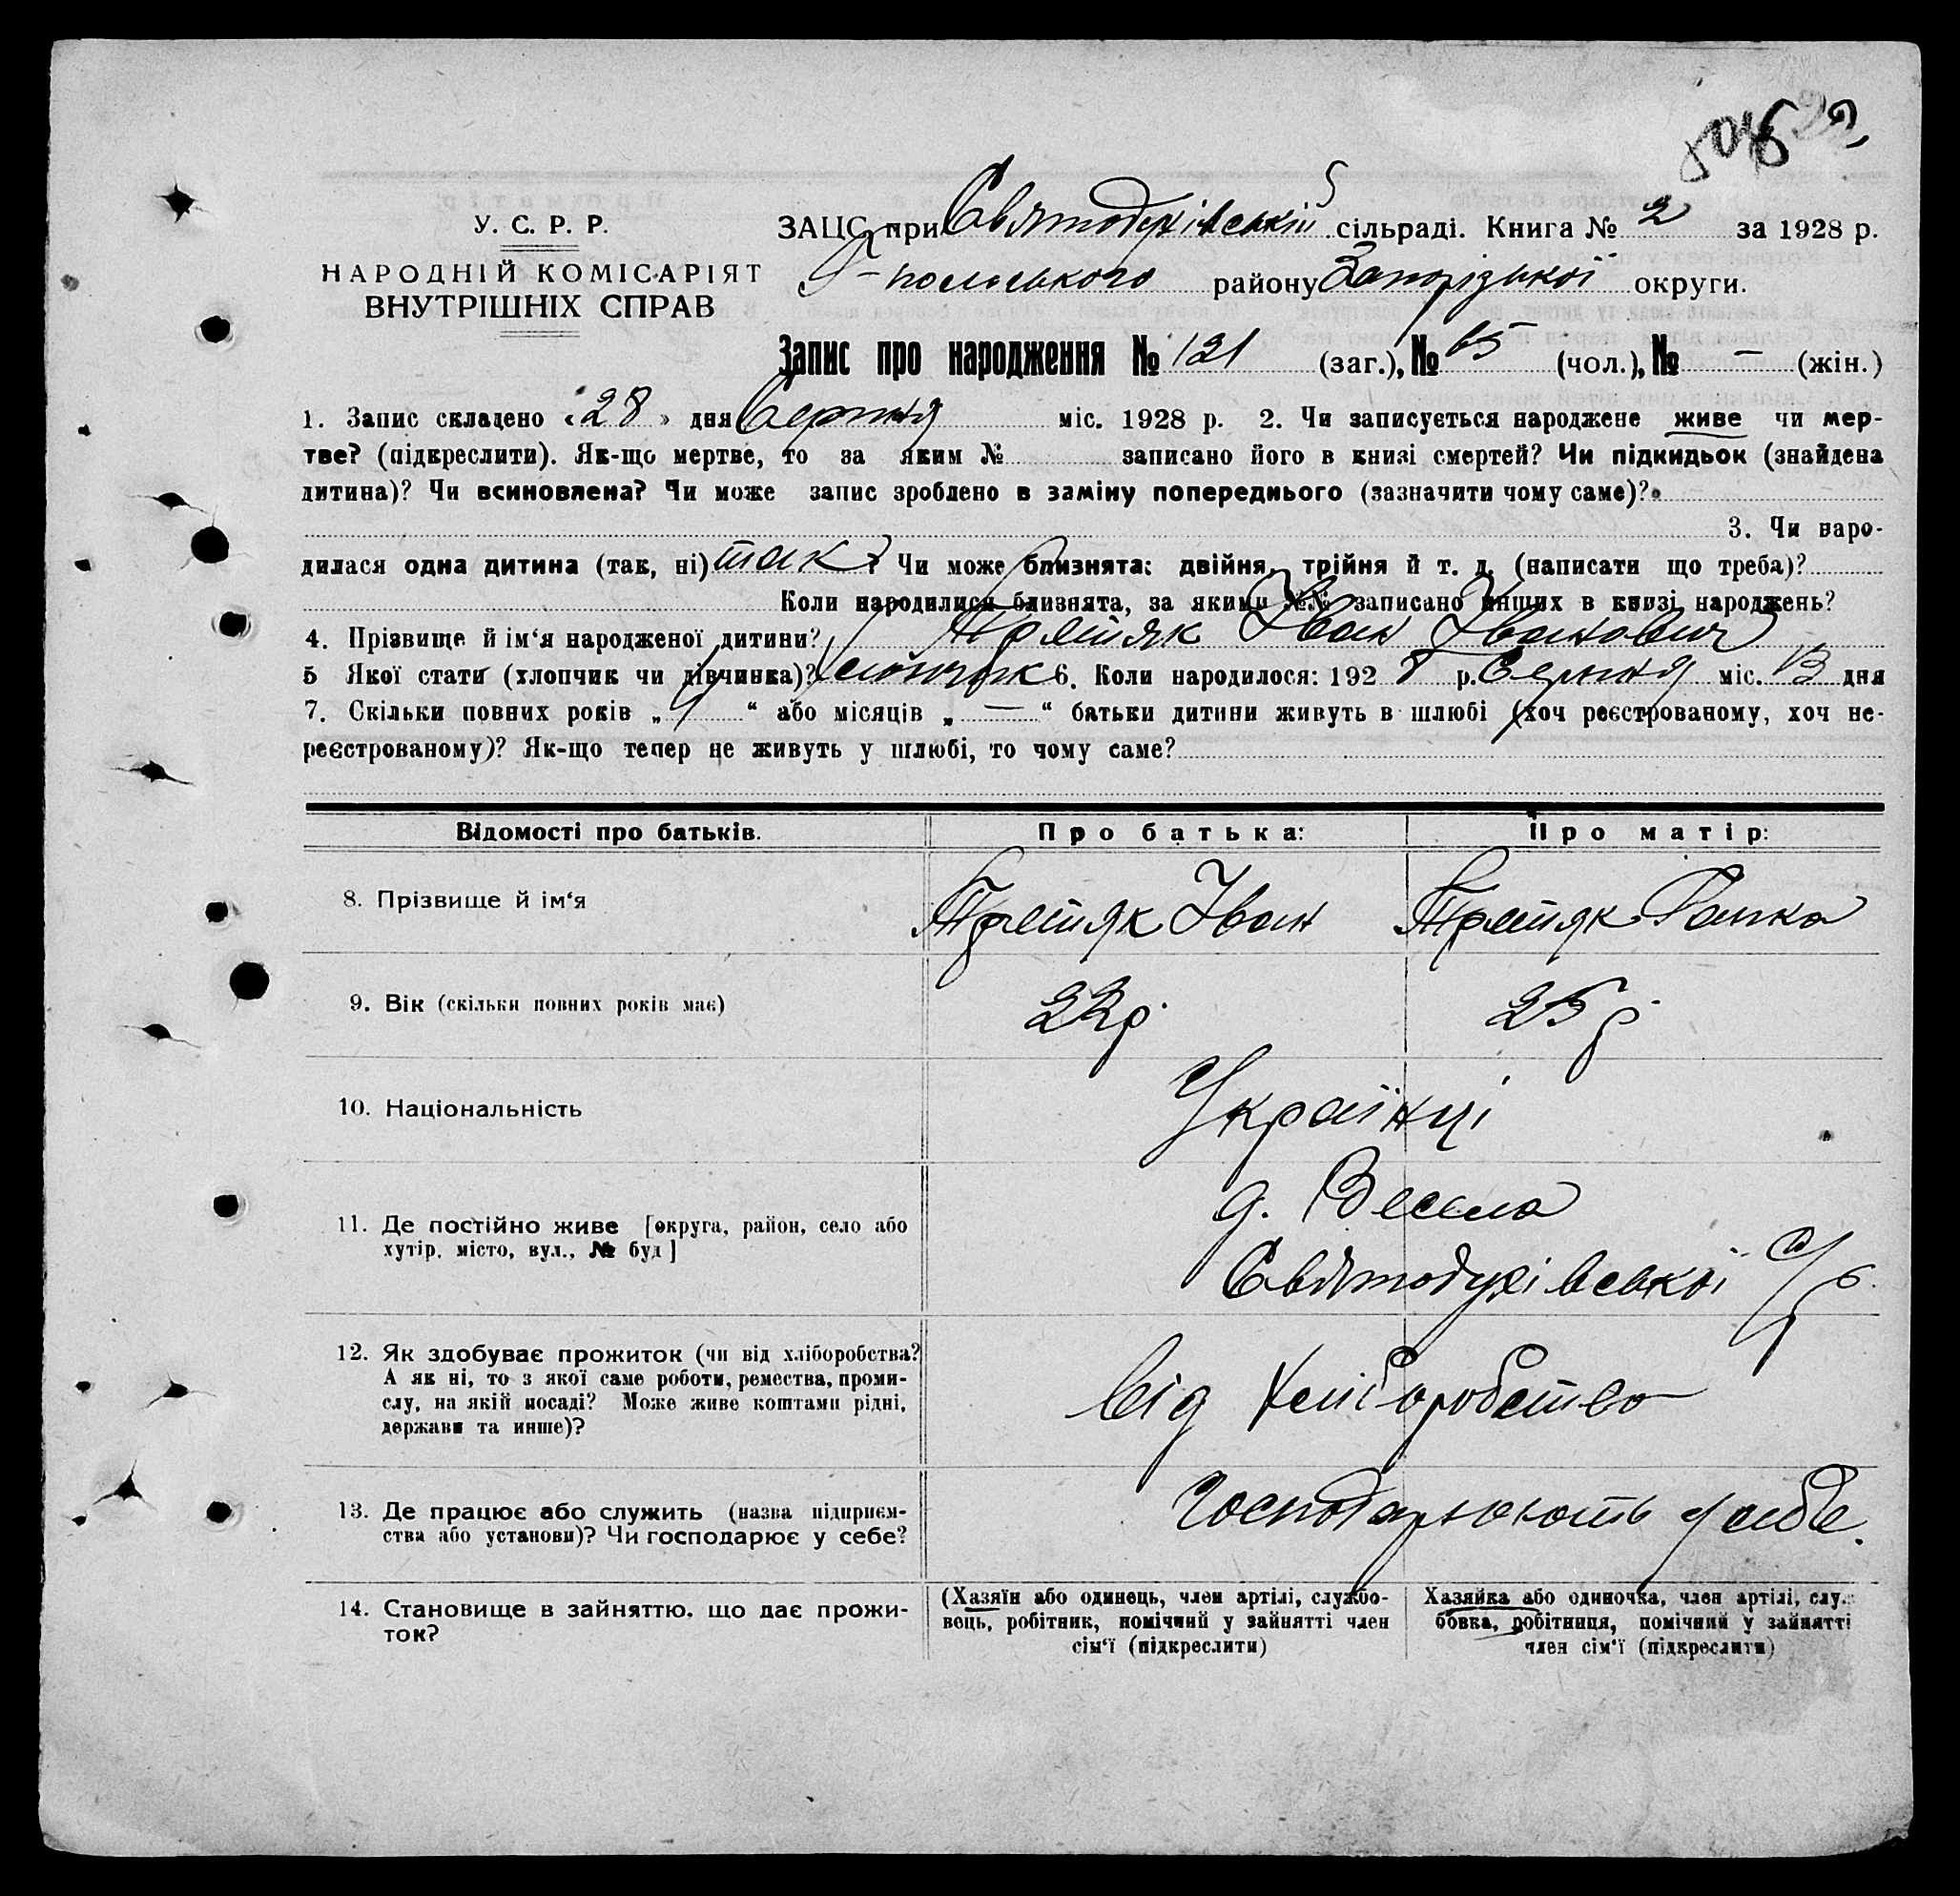 У. С. Р. Р.
НАРОДНІЙ КОМІСАРІЯТ
ВНУТРІШНІХ СПРАВ
ЗАЦС при Святодухівській сільраді. Книга № 2 за 1928 р.
Г-польського району Запорізької округи.
Запис про народження № 121 (заг.), № 65 (чол.), № — (жін.)
1. Запис складено «28» дня Серпня міс. 1928 р. 2. Чи записується народжене живе чи мер-
тве? (підкреслити). Як-що мертве, то за яким № записано його в книзі смертей? Чи підкидьок (знайдена
дитина)? Чи всиновлена? Чи може запис зроблено в заміну попереднього (зазначити чому саме)?
3. Чи наро-
дилася одна дитина (так, ні) так? Чи може близнята: двійня, трійня й т. д. (написати що треба)?
Коли народилися близнята, за якими №№ записано инших в книзі народжень?
4. Прізвище й ім‘я народженої дитини? Третяк Іван Іванович
5 Якої стати (хлопчик чи дівчинка)? хлопчик 6. Коли народилося: 1928 р. Серпня міс. 13 дня
7. Скільки повних років „ 1 “ або місяців „ — “ батьки дитини живуть в шлюбі (хоч реєстрованому, хоч не-
реєстрованому)? Як-що тепер не живуть у шлюбі, то чому саме?
Відомості про батьків. Про батька: Про матір:
8. Прізвище й ім‘я Третяк Іван Третяк Ганка
9. Вік (скільки повних років має) 22 р. 25 р.
10. Національність Українці
11. Де постійно живе [округа, район, село або
хутір, місто, вул., № буд] д. Весела
Святодухівської с/р.
12. Як здобуває прожиток (чи від хліборобства?
А як ні, то з якої саме роботи, ремества, проми-
слу, на якій посаді? Може живе коштами рідні,
держави та инше)? від хліборобство
13. Де працює або служить (назва підприєм-
ства або установи)? Чи господарює у себе? Господарюють у себе.
14. Становище в зайняттю, що дає прожи-
ток?
(Хазяїн або одинець, член артілі, службо-
вець, робітник, помічний у зайнятті член
сім‘ї (підкреслити)
Хазяйка або одиночка, член артілі, слу-
бовка, робітниця, помічний у зайнятті
член сім‘ї (підкреслити)